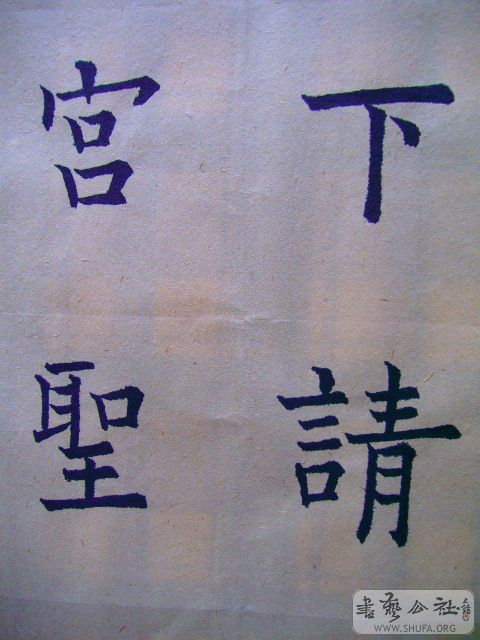 下請
宮聖
書藝公社
WWW.SHUFA.ORG